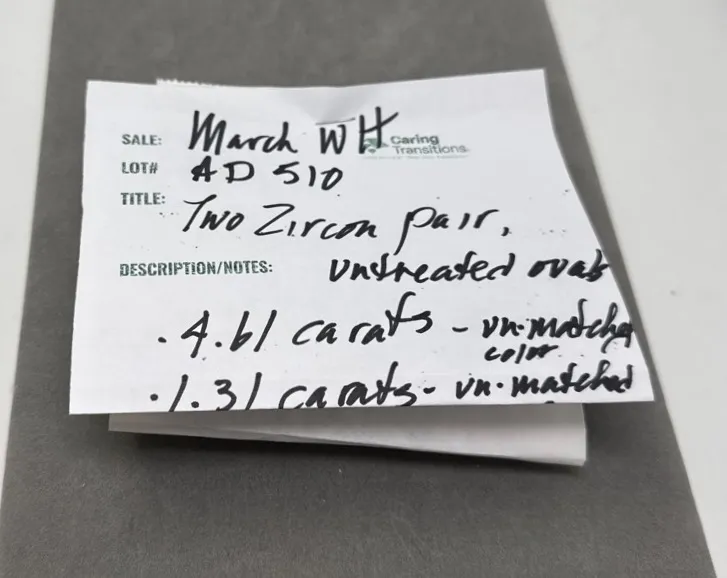 SALE: March WH Caring Transitions
LOT# AD 510
TITLE: Two Zircon pair,
DESCRIPTION/NOTES: untreated ovals
. 4.61 carats - un-matched color
. 1.31 carats - un-matched